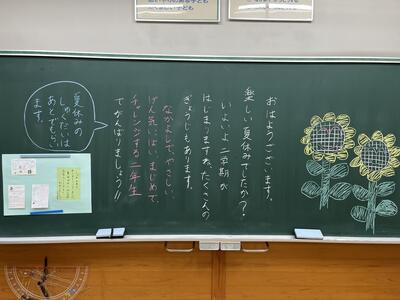 おはようございます。
楽しい夏休みでしたか？
いよいよ二学期が
はじまりますね。たくさんの
ぎょうじもあります。
なかよしで、やさしい、
げん気いっぱい、まじめで、
チャレンジする二年生
でがんばりましょう!!
夏休みの
しゅくだいは
あとでもらい
ます。